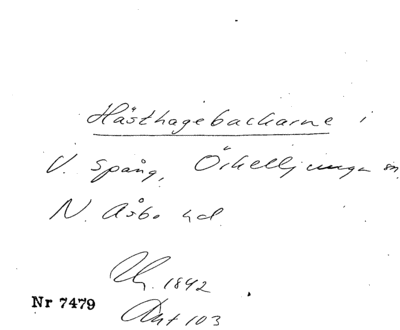 Hästhagebackarne i
V. Spång, Örkelljunga sn.
N. Åsbo hd.
1842
Nr 7479
Ant 103